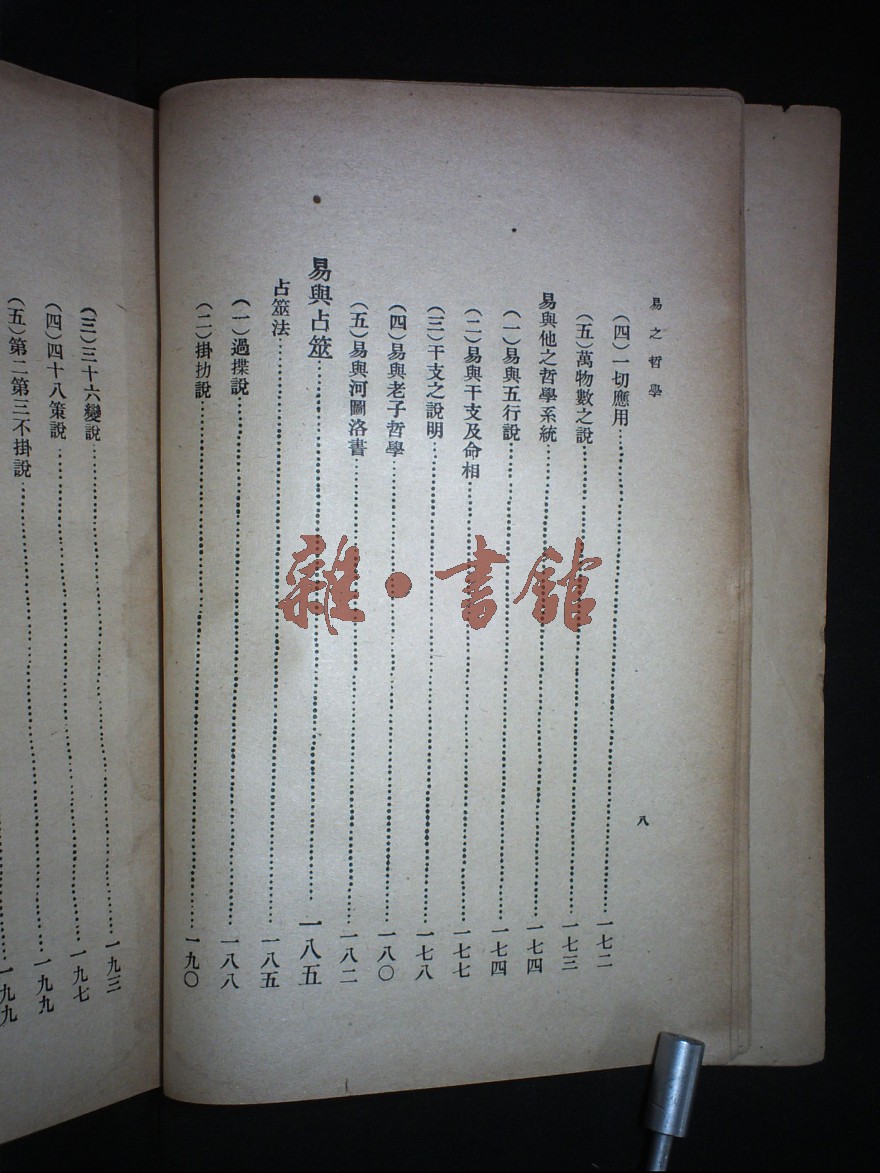 易之哲學
八
(四)一切應用……一七二
(五)萬物數之說……一七三
易與他之哲學系統……一七四
(一)易與五行說……一七四
(二)易與干支及命相……一七七
(三)干支之說明……一七八
(四)易與老子哲學……一八〇
(五)易與河圖洛書……一八二
易與占筮……一八五
占筮法……一八五
(一)過揲說……一八八
(二)掛扐說……一九〇
(三)三十六變說……一九三
(四)四十八策說……一九七
(五)第二第三不掛說……一九九
……一九九
雜·書館